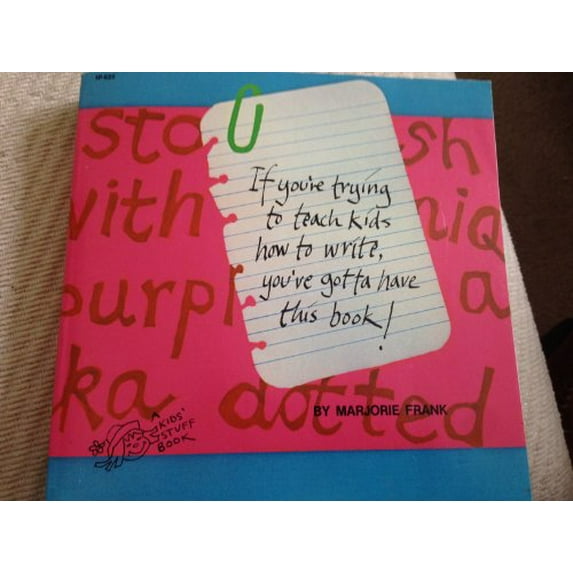 IP 62X
sto sh
with niq
purp a
ka dotted
If you're trying
to teach kids
how to write,
you've gotta have
this book!
BY MARJORIE FRANK
A
KIDS'
STUFF
BOOK